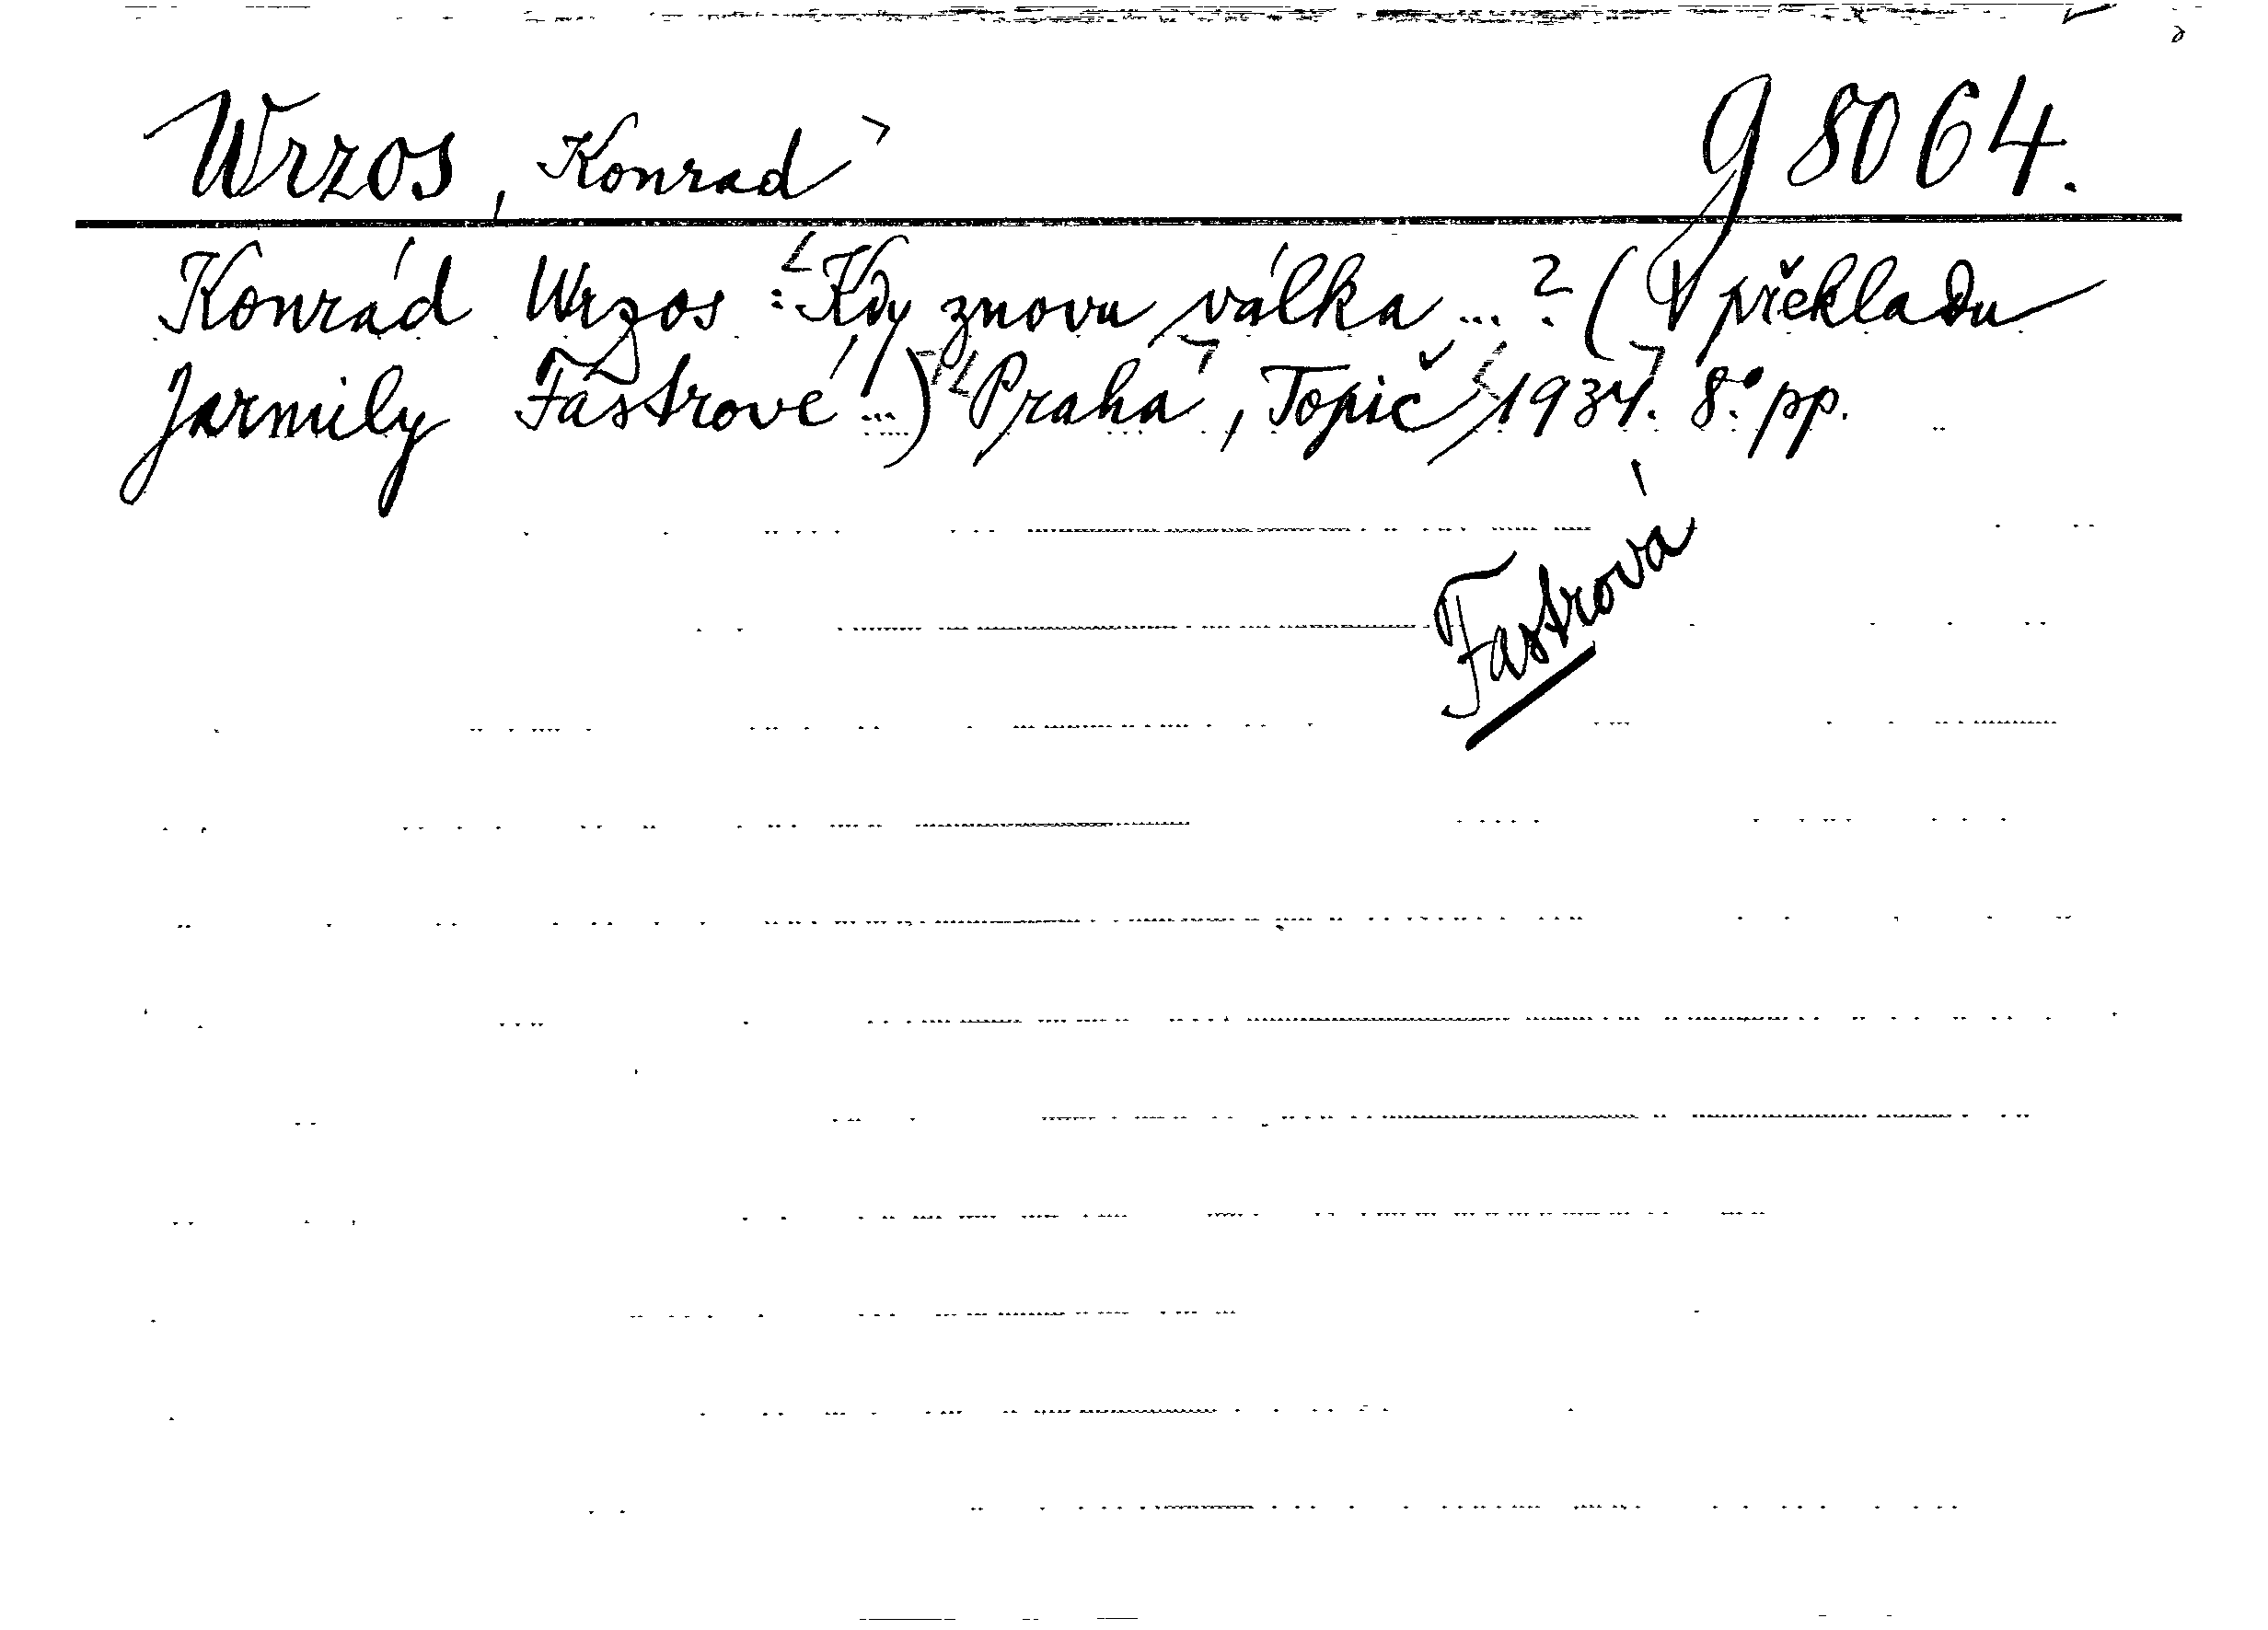 Wrzos, Konrad
g 8064.
Konrád Wrzos : Kdy znovu válka ... ? ( V překladu
Jarmily Fastrové ...) Praha, Topič, 1934. 8.° pp.
Fastrová